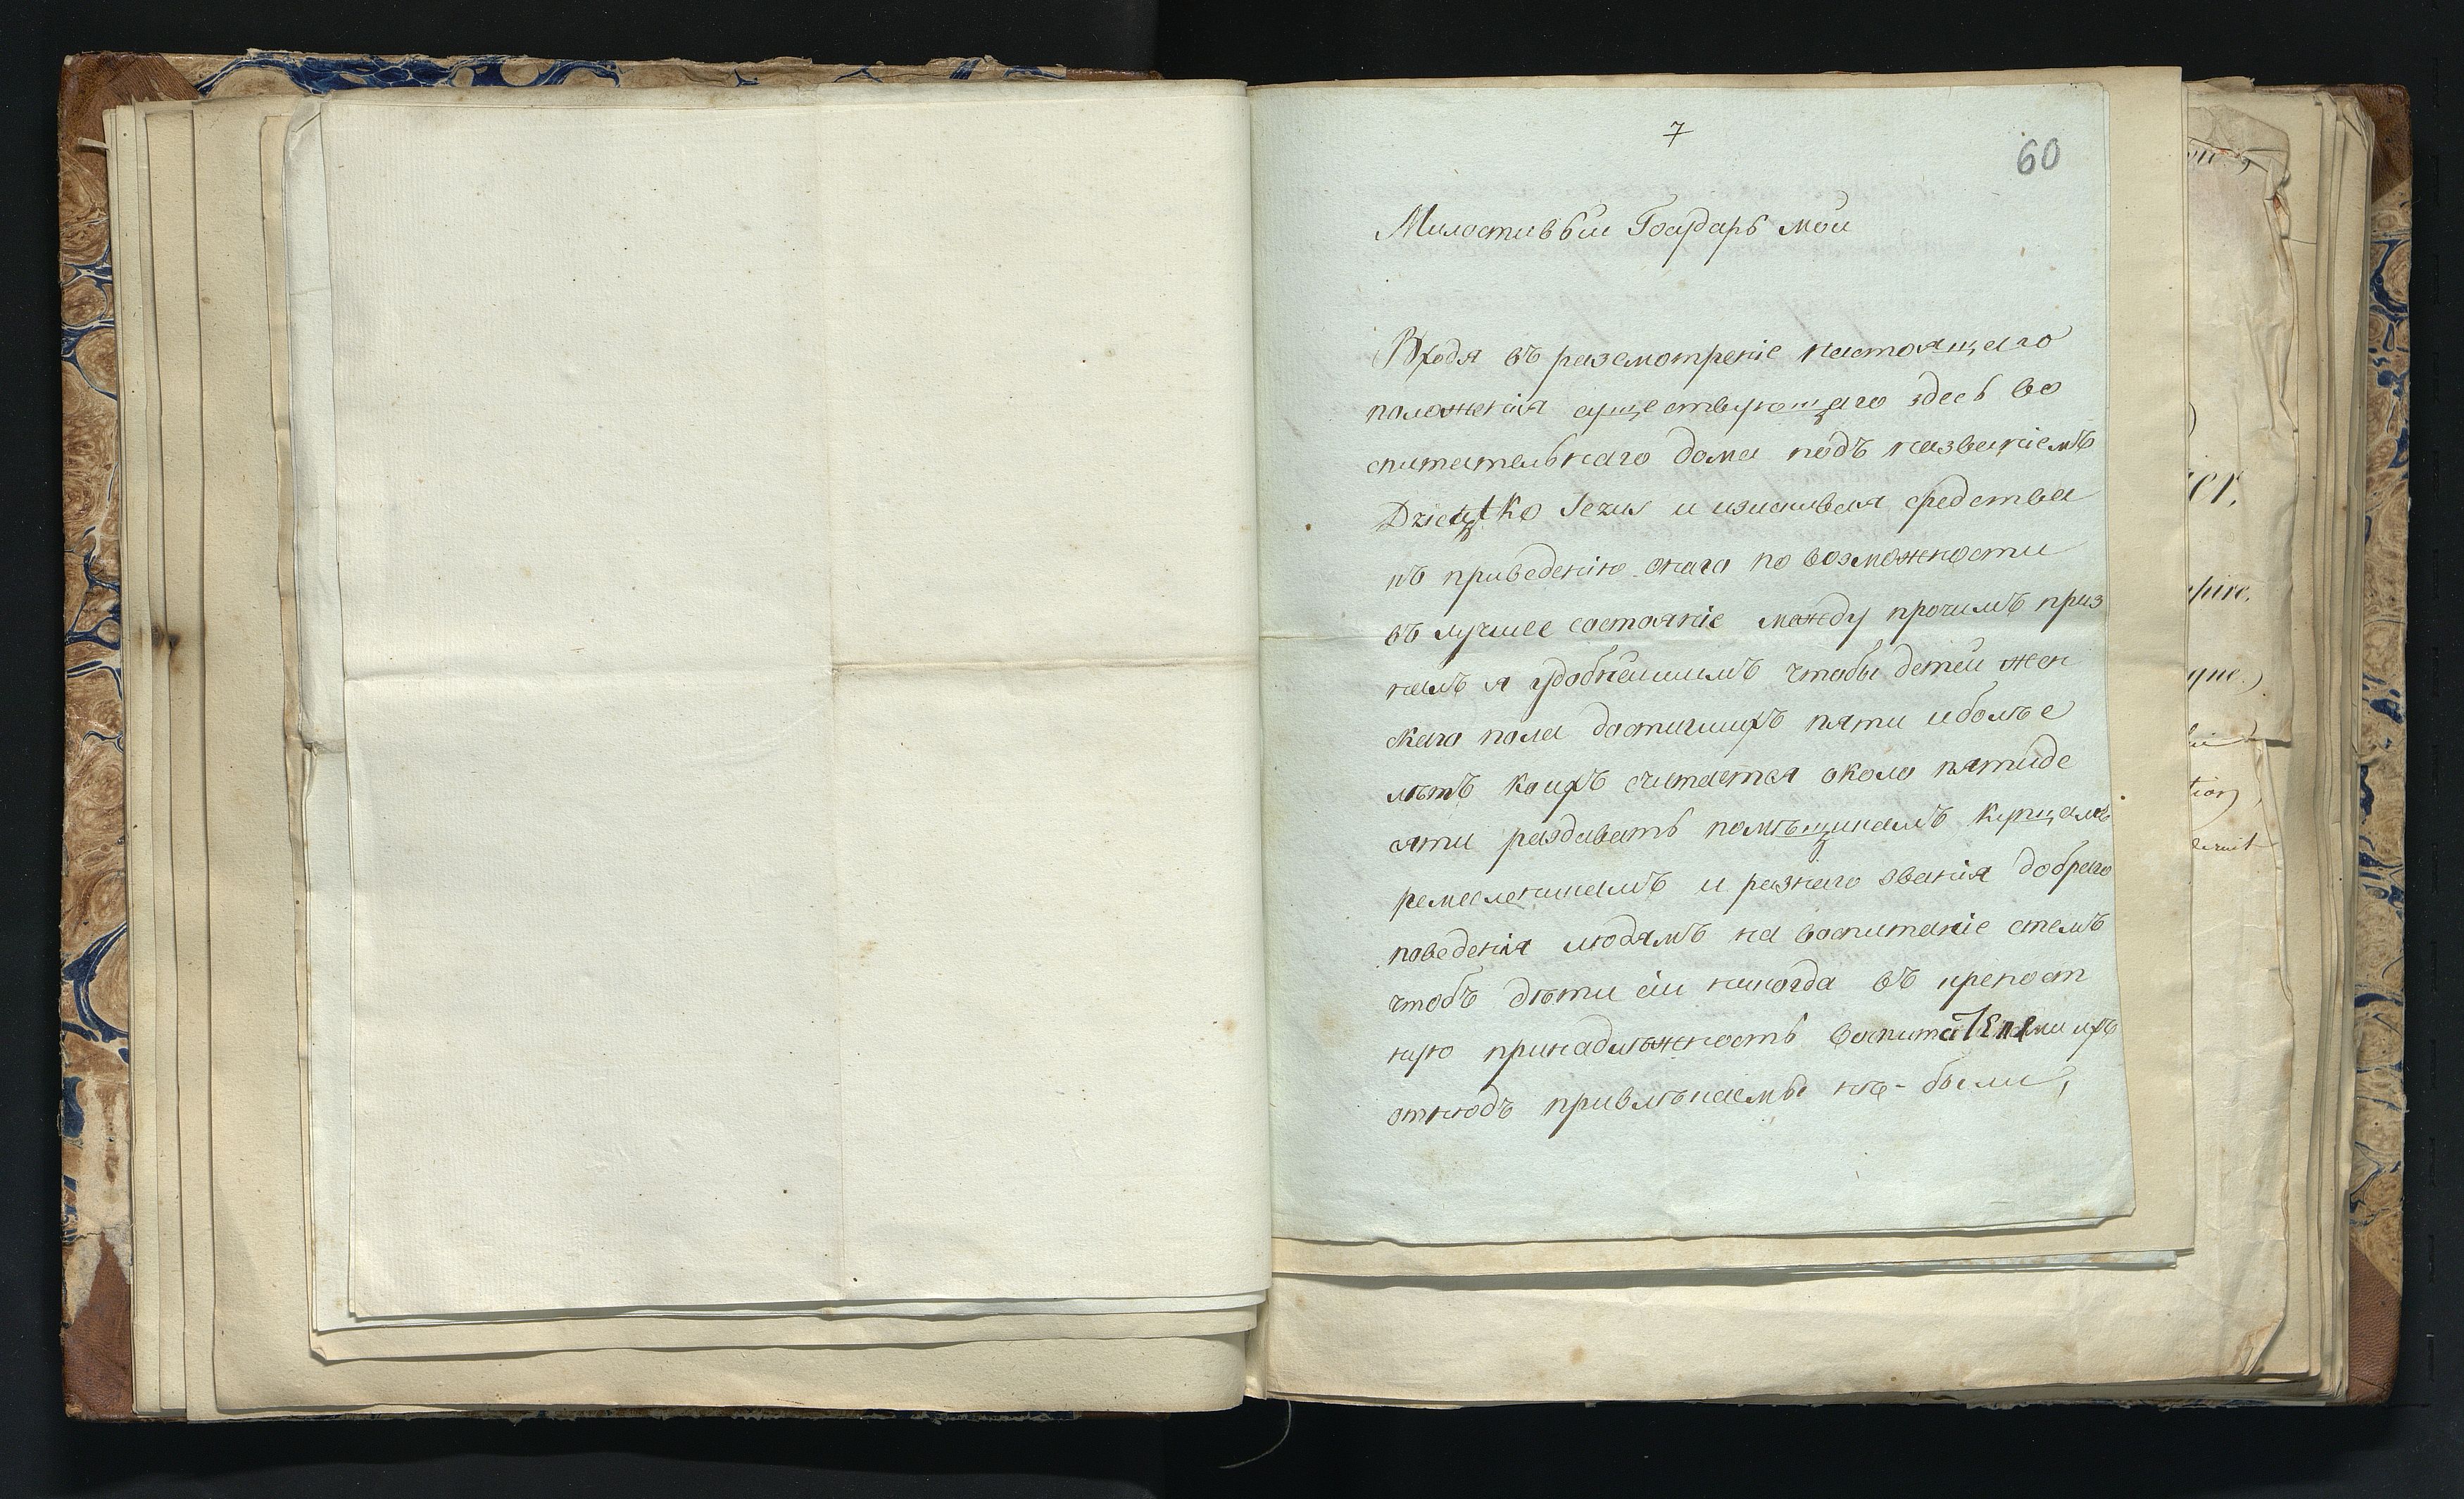 7
60
Милостивый Государь мой
Входя въ разсмотреніе настоящаго
положенія существующаго здесь во
спитательнаго дома подъ названіемъ
Dzieciątko Jezus и изыскивая средства
къ приведенію онаго по возможности
въ лучшее состояніе между прочимъ приз
налъ я удобнейшимъ чтобы детей жен
скаго пола достигшихъ пяти иболѣе
лѣтъ коихъ считается около пятиде
сяти раздавать помѣщикамъ купцамъ
ремесленикамъ и разнаго званія добраго
поведенія людямъ на воспитаніе стемъ
чтобъ дѣти сіи никогда въ крепост
ную принадлѣжность воспитателями ихъ
отнюдъ привлѣкаемы не-были,
ier,
pire,
gne,
tion,